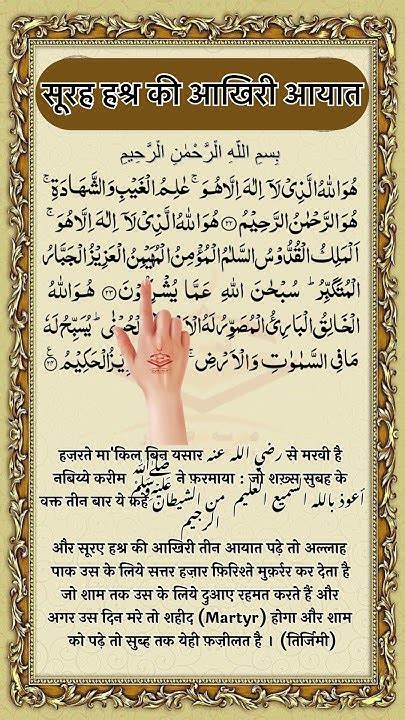 सूरह हश्र की आखिरी आयात
بِسْمِ اللّٰهِ الرَّحْمٰنِ الرَّحِيْمِ
هُوَ اللّٰهُ الَّذِىْ لَاۤ اِلٰهَ اِلَّا هُوَ ۚ عٰلِمُ الْغَيْبِ وَالشَّهَادَةِ ۚ
هُوَ الرَّحْمٰنُ الرَّحِيْمُ ﴿۲۲﴾ هُوَ اللّٰهُ الَّذِىْ لَاۤ اِلٰهَ اِلَّا هُوَ ۚ
اَلْمَلِكُ الْقُدُّوْسُ السَّلٰمُ الْمُؤْمِنُ الْمُهَيْمِنُ الْعَزِيْزُ الْجَبَّارُ
الْمُتَكَبِّرُ ؕ سُبْحٰنَ اللّٰهِ عَمَّا يُشْرِكُوْنَ ﴿۲۳﴾ هُوَ اللّٰهُ
الْخَالِقُ الْبَارِئُ الْمُصَوِّرُ لَهُ ؕ يُسَبِّحُ لَهٗ
مَا فِى السَّمٰوٰتِ وَالْاَرْضِ ۚ الْحَكِيْمُ ﴿۲۴﴾
हज़रते मा'क़िल बिन यसार رضي الله عنه से मरवी है
नबिय्ये करीम ﷺ ने फ़रमाया : जो शख़्स सुबह के
वक्त तीन बार ये कहे أعوذ بالله السميع العليم من الشيطان
الرجيم
और सूरए हश्र की आखिरी तीन आयात पढ़े तो अल्लाह
पाक उस के लिये सत्तर हज़ार फ़िरिश्ते मुक़र्रर कर देता है
जो शाम तक उस के लिये दुआए रहमत करते हैं और
अगर उस दिन मरे तो शहीद (Martyr) होगा और शाम
को पढ़े तो सुब्ह तक येही फ़ज़ीलत है । (तिर्जिमी)